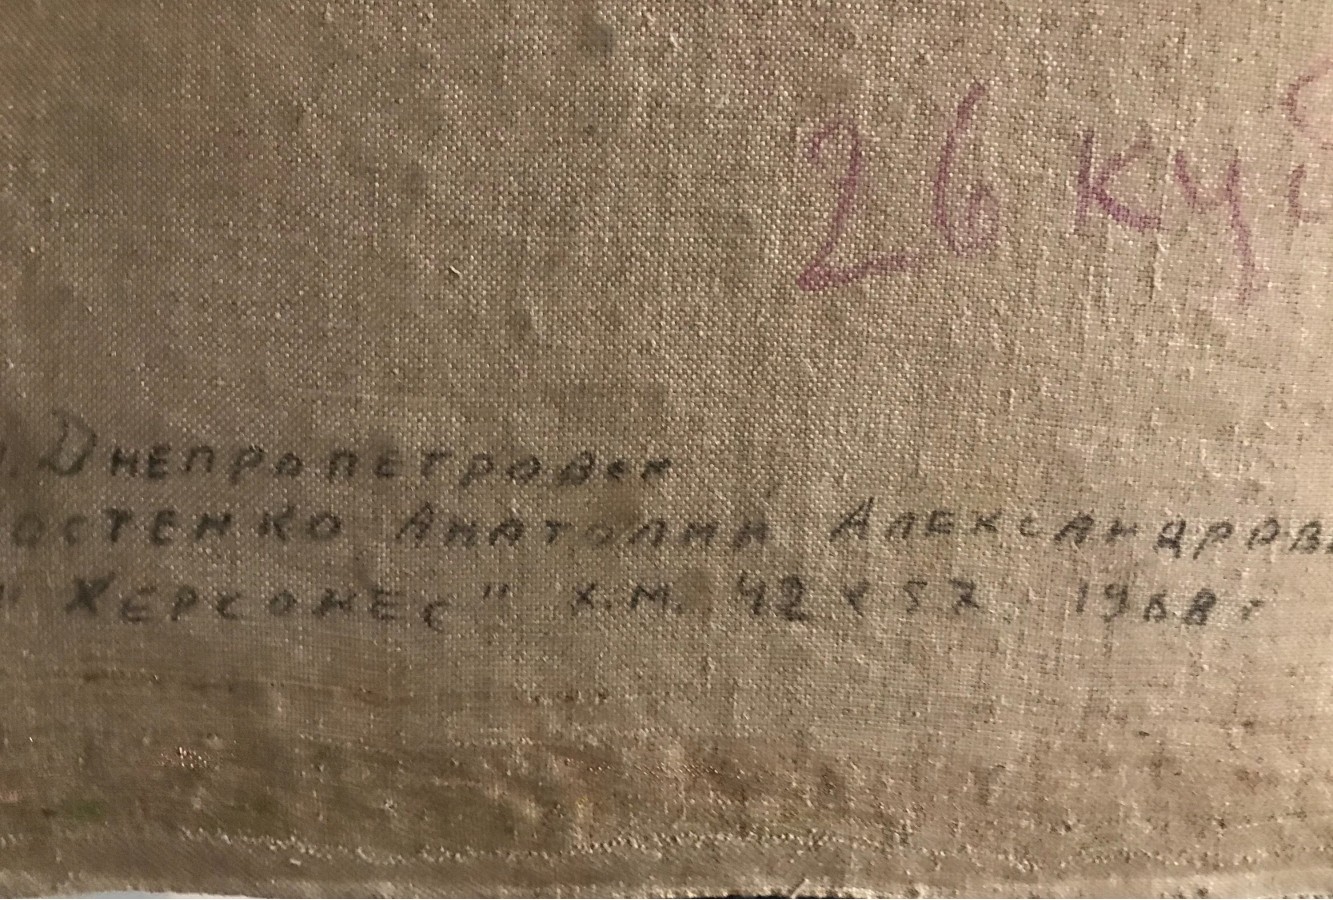 26 куб
. Днепропетровск
остенко Анатолий Александров
" Херсонес" х.м. 42 х 57. 1968 г